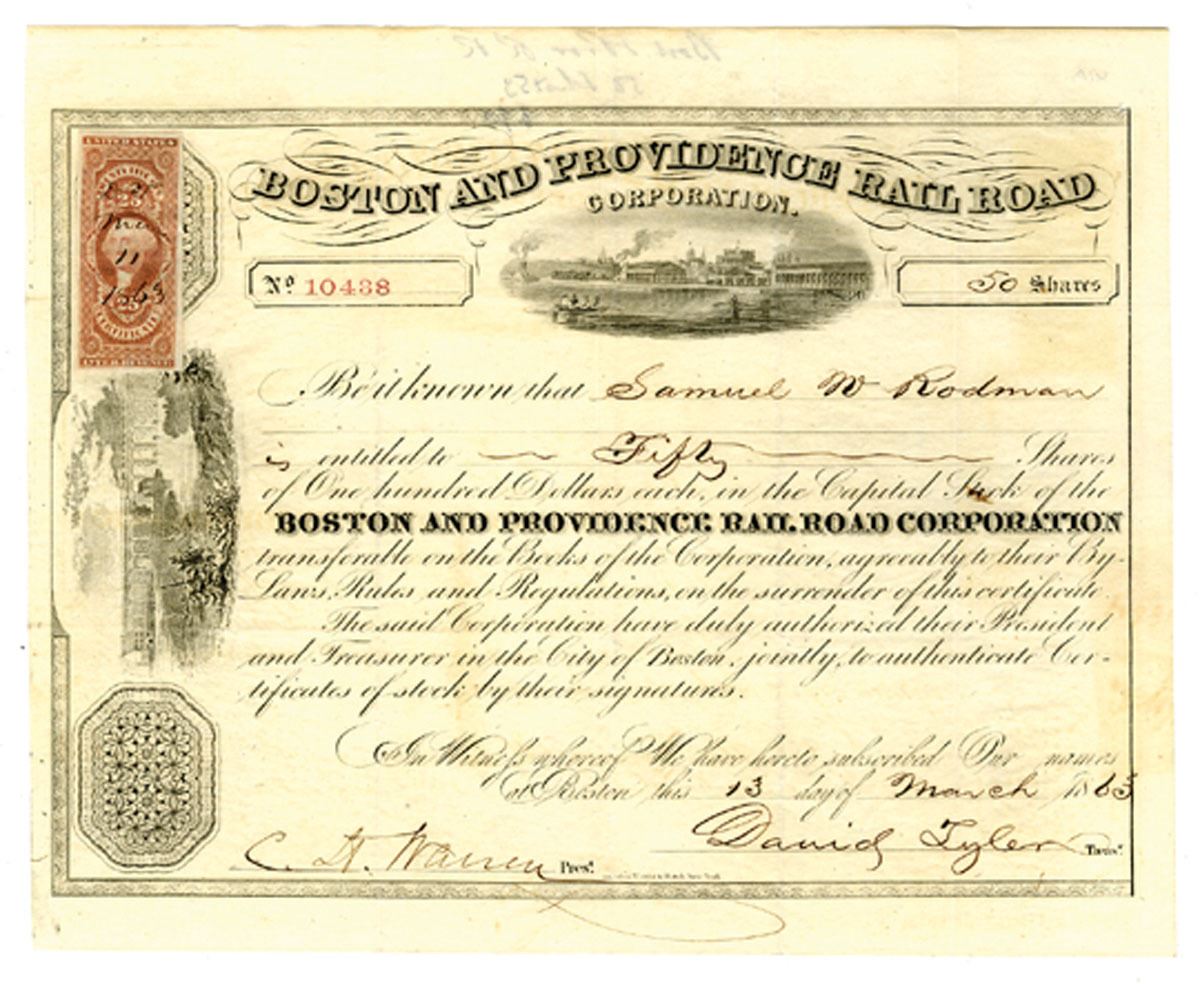 UNITED STATES
25
Mar
11
1863
25
CERTIFICATE
INTER. REVENUE
BOSTON AND PROVIDENCE RAIL ROAD
CORPORATION.
No 10438
50 Shares
Be it known that Samuel W Rodman
is entitled to Fifty Shares
of One hundred Dollars each, in the Capital Stock of the
BOSTON AND PROVIDENCE RAIL ROAD CORPORATION
transferable on the Books of the Corporation, agreeably to their By-
Laws, Rules and Regulations, on the surrender of this certificate.
The said Corporation have duly authorized their President
and Treasurer in the City of Boston, jointly, to authenticate Cer-
tificates of stock by their signatures.
In Witness whereof We have hereto subscribed Our names
at Boston this 13 day of March 1863
C. H. Warren Prest.
David Tyler Treasr.